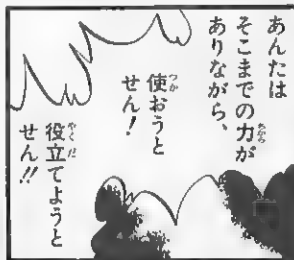 あんたは
そこまでの力が
ありながら、
使おうと
せん!
役立てようと
せん!!